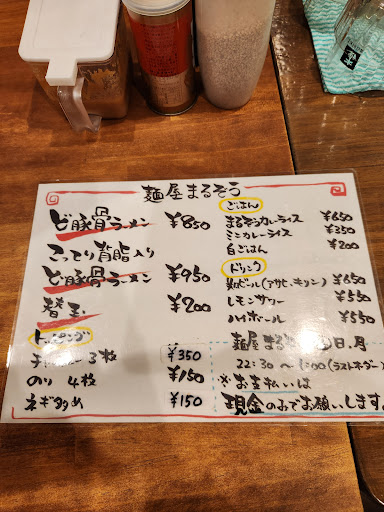 麺屋まるそう
ド豚骨ラーメン ¥850
こってり背脂入り
ド豚骨ラーメン ¥950
替玉 ¥200
トッピング
チャーシュー3枚 ¥350
のり 4枚 ¥150
ネギ多め ¥150
ごはん
まるそうカレーライス ¥650
ミニカレーライス ¥350
白ごはん ¥200
ドリンク
瓶ビール(アサヒ、キリン) ¥650
レモンサワー ¥550
ハイボール ¥550
麺屋まる 日、月
22:30〜 :00(ラストオーダー
※お支払いは
現金のみでお願いします。